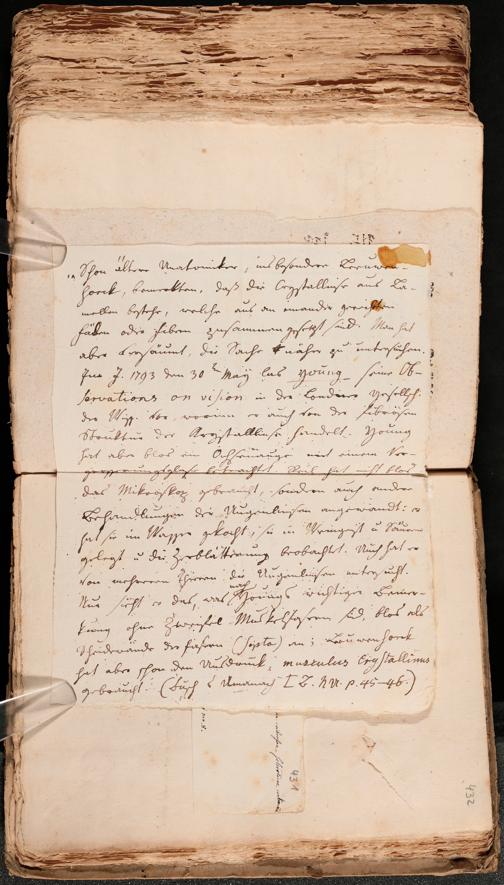 "Schon ältere Anatomiker, insbesondere Leeuwen-
hoeck, bemerkten, daß die Crystallinse aus La-
mellen bestehe, welche aus an einander gereihten
Fäden oder Fibern zusammengesetzt sind. Man hat
aber versäumt, die Sache näher zu untersuchen.
Im J. 1793 den 30t May las Young seine Ob-
servations on vision in der Londner Gesellsch.
der Wiss. vor, worinn er auch von der fibrösen
Struktur der Krystallinse handelt. Young
hat aber blos ein Ochsenauge mit einem Ver-
grösserungsglase betrachtet. Reil hat nicht blos
das Mikroskop gebraucht, sondern auch andre
Behandlungen der Augenlinsen angewandt: er
hat sie im Wasser gekocht, sie in Weingeist u Säuren
gelegt u die Zerblätterung beobachtet. Auch hat er
von mehreren Thieren die Augenlinsen untersucht.
Nur sieht er das, was nach Youngs wichtiger Bemer-
kung ohne Zweifel Muskelfasern sind, blos als
Scheidewände der Fasern (Septa) an; Leuwenhoeck
hat aber schon den Ausdruck, musculus Crystallinus
gebraucht. p. 45-46.)
431
432